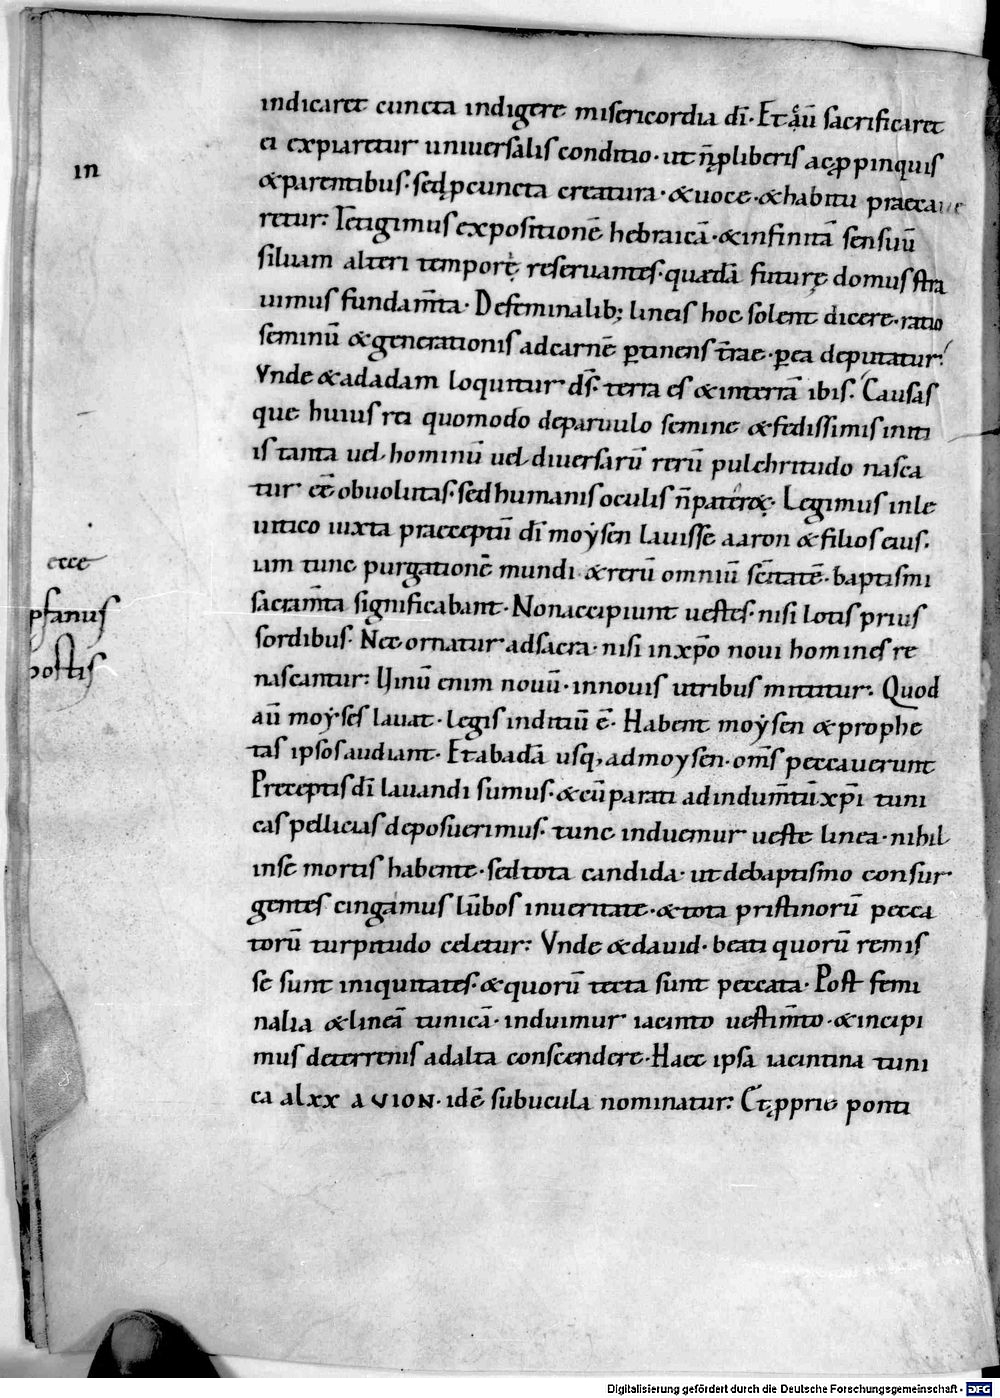 indicaret cuncta indigere misericordia dī· Et qͣ̄u sacrificaret
ei expiaretur uniuersalis conditio· ut n̄ p liberis ac ꝓpinquis
in
& parentibus· sed ꝓ cuncta creatura· & uoce· & habitu praeca
retur: Tetigimus expositionē hebraicā· & infinitā sensuū
siluam alteri temporę reseruantes· quædā futurę domus stra
uimus fundam̄ta· De feminalib; lineis hoc solent dicere· ratio
seminū & generationis ad carnē ꝑtinens t̄rae· ꝑ ea deputatur:
Vnde & ad adam loquitur d̄s· terra es & in terrā ibis· Causas
que huius rei quomodo de paruulo semine & fedissimis initi
is tanta uel hominū uel diuersarū rerū pulchritudo nasca
tur eē obuolutas· sed humanis oculis n̄ Legimus in le
uitico iuxta praeceptū dī moẏsen lauisse aaron & filios eius·
iam tunc purgationē mundi & rerū omniū sc̄itatē· baptismi
ecce
sacram̄ta significabant· Non accipiunt uestes· nisi lotis prius
pfanus
sordibus· Nec ornatur ad sacra· nisi in xp̄o noui homines re
hostis
nascantur: Uinū enim nouū· in nouis utribus mittitur: Quod
aū moẏses lauat· legis inditiū ē· Habent moẏsen & prophe
tas ipsos audiant· Et ab adā usq; ad moysen· om̄s peccauerunt
Preceptis dī lauandi sumus· & cū parati ad indum̄tū xp̄i tuni
cas pellicias deposuerimus· tunc induemur ueste linea· nihil
in se mortis habente· sed tota candida· ut de baptismo consur
gentes cingamus lūbos in ueritate· & tota pristinorū pecca
torū turpitudo celetur: Vnde & dauid· beati quorū remis
se sunt iniquitates· & quorū tecta sunt peccata· Post femi
nalia & lineā tunicā· induimur iacinto uestim̄to· & incipi
mus de terrenis ad alta conscendere· Haec ipsa iacintina tuni
ca a lxx a VION· idē subucula nominatur: Et ꝓprie ponti